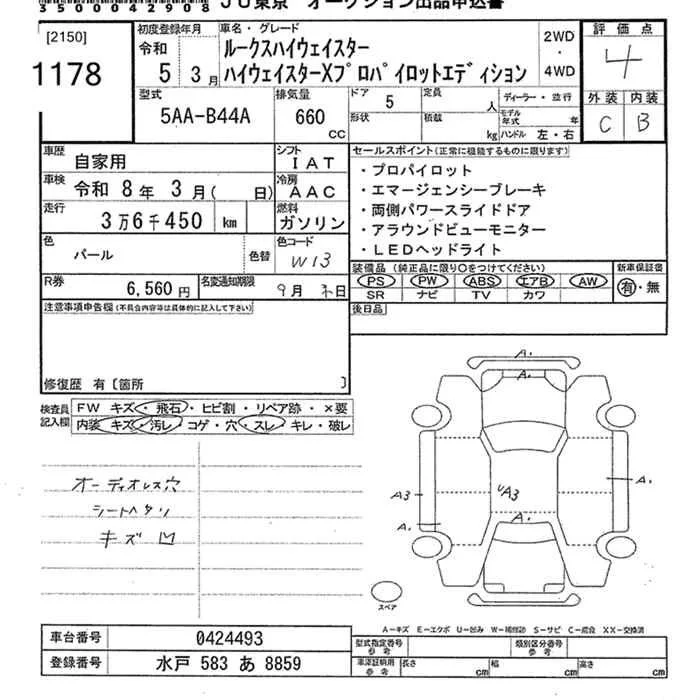 35000042908 JU東京 オークション出品申込書
[2150]
1178
初度登録年月
令和
5 3月
車名・グレード
ルークスハイウェイスター
ハイウェイスターXプロパイロットエディション
2WD
・
4WD
評価点
4
外装 内装
C B
型式
5AA-B44A
排気量
660
CC
ドア 5
形状
定員 人
積載 kg
ディーラー・並行
モデル年式 年
ハンドル 左・右
車歴 自家用
シフト IAT
車検 令和 8年 3月( 日)
冷房 AAC
走行 3万6千450 km
燃料 ガソリン
色 パール 色替
色コード W13
R券 6,560円
名変通知期限 9月 末日
セールスポイント(正常に機能するものに限ります)
・プロパイロット
・エマージェンシーブレーキ
・両側パワースライドドア
・アラウンドビューモニター
・LEDヘッドライト
装備品(純正品に限り○をつけてください)
PS PW ABS エアB AW
SR ナビ TV カワ
新車保証書
有・無
後日品
注意事項申告欄(不具合内容等は具体的に記入して下さい)
修復歴 有〔箇所 〕
検査員記入欄
FW キズ・飛石・ヒビ割・リペア跡・×要
内装 キズ・汚レ・コゲ・穴・スレ・キレ・破レ
オーディオレス穴
シートヘタリ
キズ 凹
A1
A1
A3
A1
UA3
A1
A1
スペア
A−キズ E−エクボ U−凹み W−補修跡 S−サビ C−腐食 XX−交換済
車台番号 0424493
登録番号 水戸 583 あ 8859
型式指定番号 参考
類別区分番号 参考
車庫証明用 参考
長さ cm 幅 cm 高さ cm